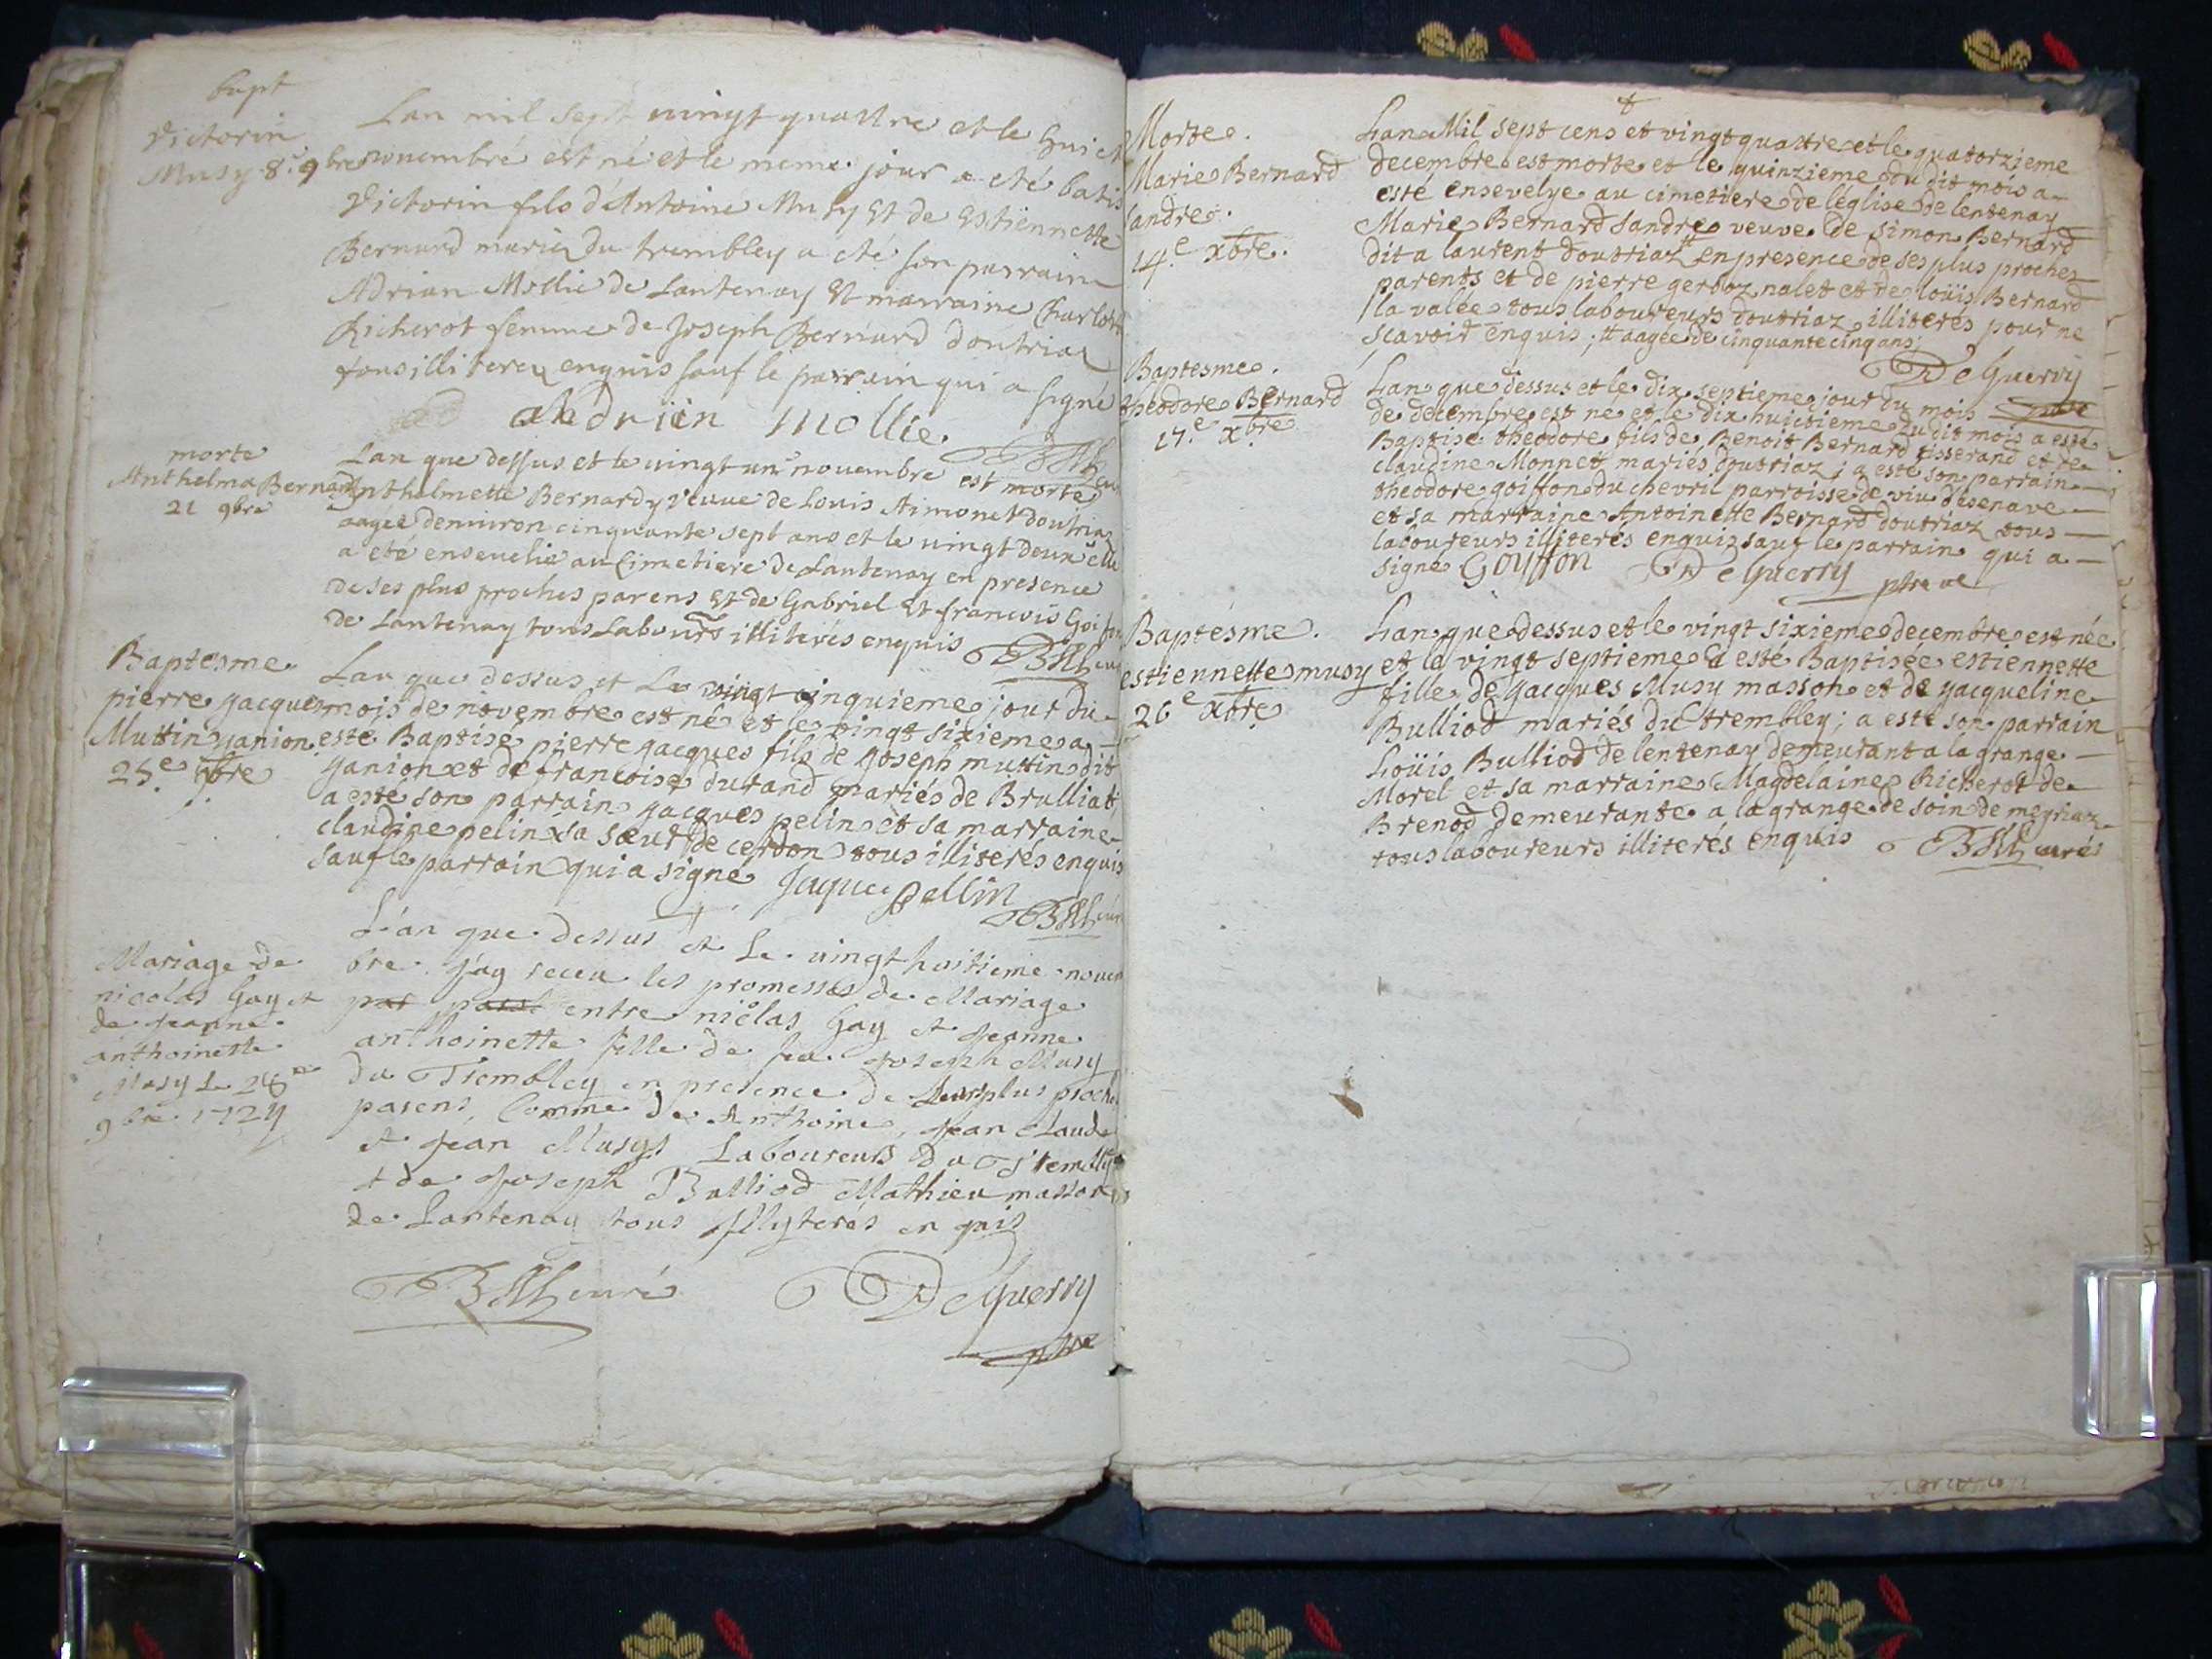 bapt
Victorin
Musy 8.e 9bre
Lan mil sept vingt quattre et le huict
novembre est né et le meme jour a eté batis
Victorin fils d'Antoine Musy Et de Estiennette
Bernard mariez du trembley a eté son parrain
Adrian Mollie de Lantenay Et marraine Charlotte
Richerot femme de Joseph Bernard doutriaz
tous illiterez enquis sauf le parrain qui a signé
Andriin Mollie
morte
Anthelma Bernard
21 9bre
Lan que dessus et le vingt un novembre est morte
Anthelmette Bernardy veuve de Louis Aimonet doutriaz
aagée denviron cinquante sept ans et le vingt deux elle
a eté ensevelie au Cimetiere de Lantenay en presence
de ses plus proches parens Et de Gabriel Et francois Goiffon
de Lantenay tous Labours illiterés enquis
Baptesme
pierre jacques
Muttin janion
25e 9bre
Lan que dessus et Le vingt cinquieme jour du
mois de novembre est né et le vingt sixieme a
esté Baptisé pierre jacques fils de joseph muttin dit
janion et de francoise durand mariés de Brulliat;
a esté son parrain jacques pelin et sa marraine
claudine pelin sa sœur de cerdon tous illiterés enquis
sauf le parrain qui a signé Jaque pellin
Mariage de
nicolas Gay et
de jeanne
anthoinette
Musy Le 28me
9bre 1724
L'an que dessus et Le vingt huitieme novem
bre j'ay receu les promesses de Mariage
par entre nicolas Gay et jeanne
anthoinette fille de feu joseph Musy
du Trembley en presence de Leurs plus proches
parens, Comme de Anthoine, jean Claude
et jean Musys Laboureurs du Trembley
et de joseph Bulliod Mathieu masson
de Lantenay tous Illyterés en quis
curé DeGuerry
ptre
Morte.
Marie Bernard
sandre.
14.e xbre.
Lan Mil sept cens et vingt quattre et le quatorzieme
decembre est morte et le quinzieme du dit mois a
esté ensevelye au cimetiere de léglise de lentenay
Marie Bernard sandre veuve de simon Bernard
dit a laurent doutriaz # en presence de ses plus proches
parents et de pierre gerboz nalet et de loüis Bernard
la valée tous laboureurs doutriaz illiterés pour ne
scavoir enquis; # aagée de cinquante cinq ans;
DeGuerry
ptre
Baptesme.
theodore Bernard
17.e xbre
Lan que dessus et le dix septieme jour du mois
de decembre est ne et le dix huictieme du dit mois a esté
Baptisé theodore fils de Benoit Bernard tisserand et de
claudine Monnet mariés doutriaz; a esté son parrain
theodore goiffon du chevril parroisse de viu desenave
et sa marraine Antoinette Bernard doutriaz tous
laboureurs illiterés enquiz sauf le parrain qui a
signé Goyffon DeGuerry ptre
Baptesme.
estiennette musy
26e xbre
Lan que dessus et le vingt sixieme decembre est née
et le vingt septieme a esté Baptisée estiennette
fille de jacques Musy masson et de jacqueline
Bulliod mariés du trembley; a esté son parrain
Loüis Bulliod de lentenay demeurant a la grange
Morel et sa marraine Magdelaine Richerot de
Brenod demeurante a la grange de soin de meyriaz
tous laboureurs illiterés enquis curé